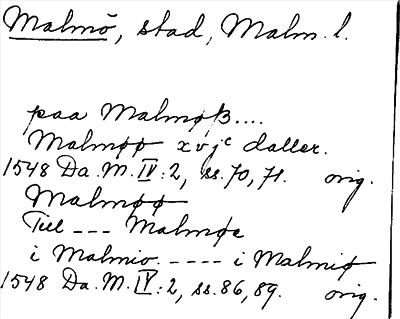 Malmö, stad, Malm. l.
paa Malmøß....
Malmøø xvjᶜ daller.
1548 Da. M. IV:2, ss. 70, 71. orig.
Malmøø
Till --- Malmøe
i Malmio. ---- i Malmiø
1548 Da. M. IV:2, ss. 86, 89. orig.